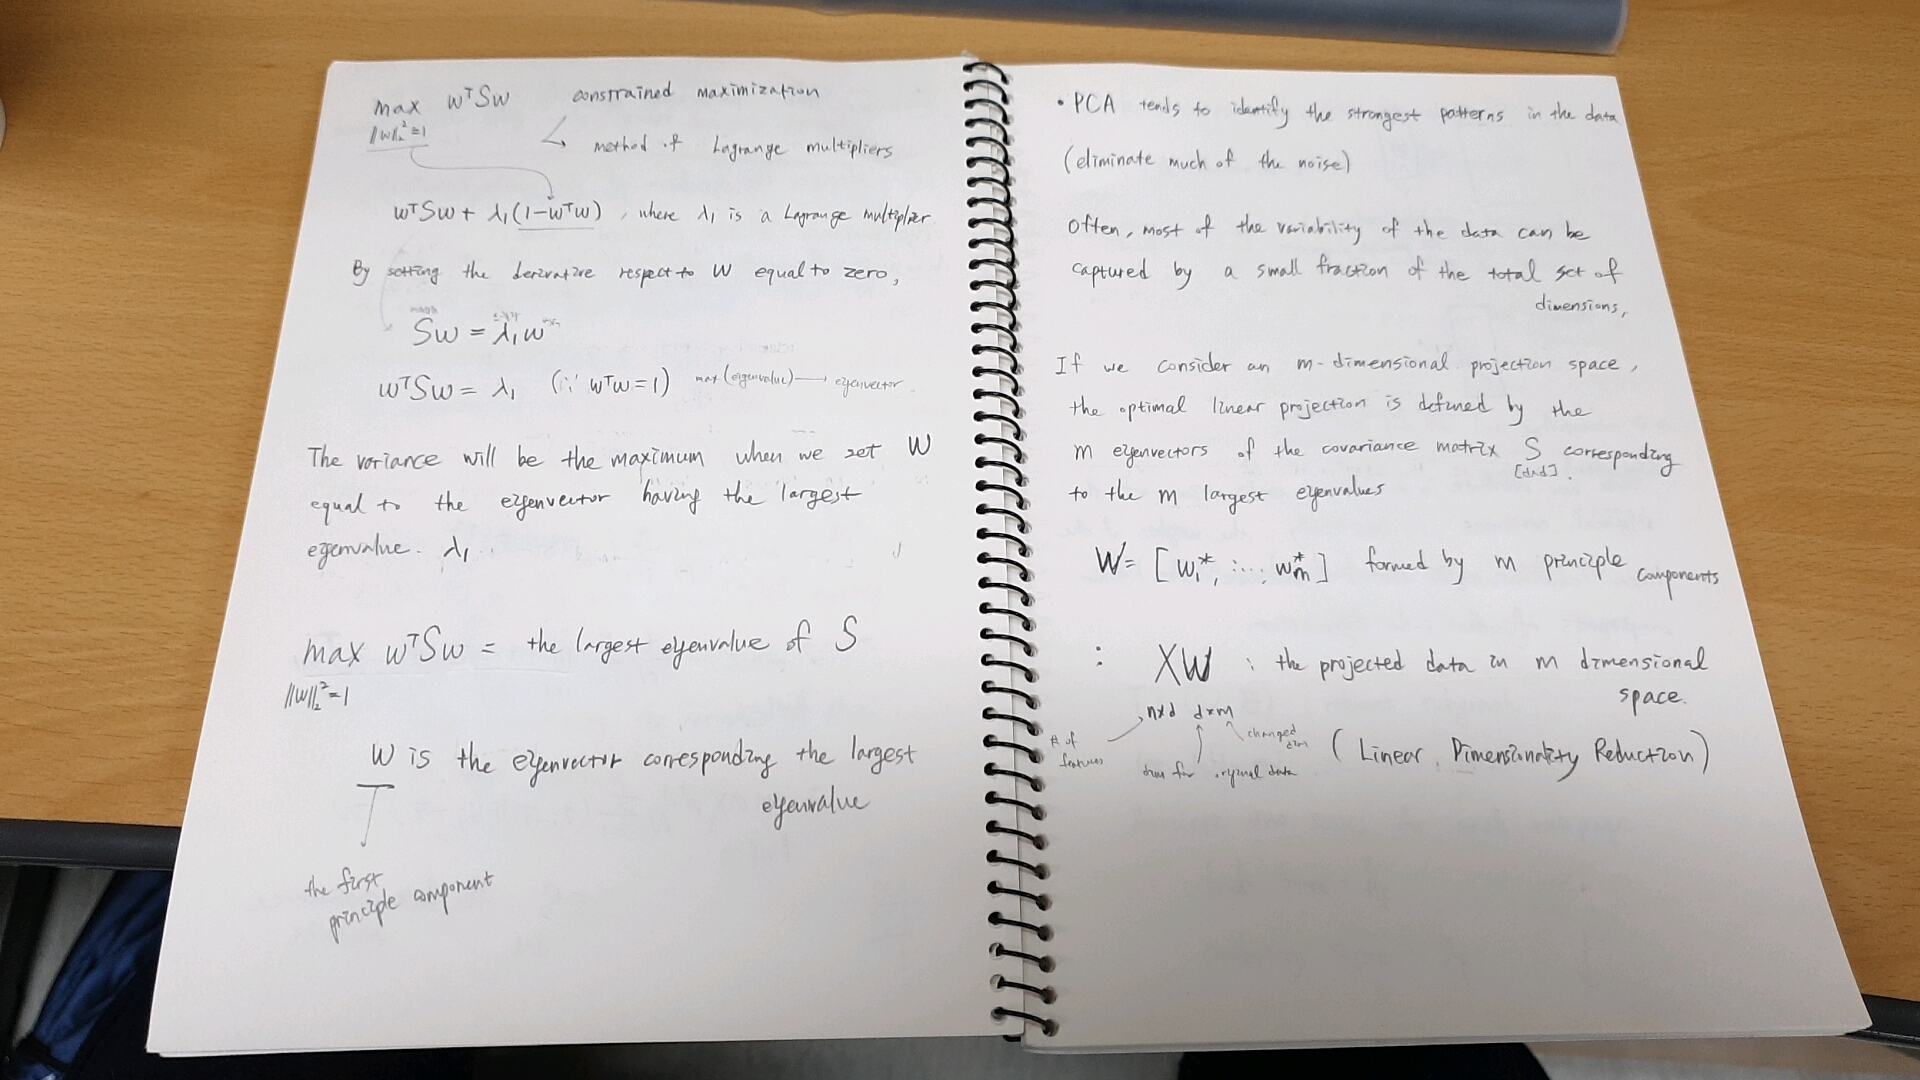 max wᵀSw constrained maximization
‖w‖₂²=1
method of Lagrange multipliers
wᵀSw + λ₁(1-wᵀw), where λ₁ is a Lagrange multiplier
By setting the derivative respect to w equal to zero,
Sw = λ₁w
wᵀSw = λ₁ (∵ wᵀw=1) max(eigenvalue) → eigenvector
The variance will be the maximum when we set W
equal to the eigenvector having the largest
eigenvalue. λ₁
max wᵀSw = the largest eigenvalue of S
‖w‖₂²=1
W is the eigenvector corresponding the largest
eigenvalue
the first
principle component
• PCA tends to identify the strongest patterns in the data
(eliminate much of the noise)
Often, most of the variability of the data can be
captured by a small fraction of the total set of
dimensions,
If we consider an m-dimensional projection space,
the optimal linear projection is defined by the
m eigenvectors of the covariance matrix S corresponding
[d×d]
to the m largest eigenvalues
W = [w₁*, ..., wₘ*] formed by m principle components
: XW : the projected data in m dimensional
space.
n×d d×m
# of
features
changed
dim
dim for original data
(Linear Dimensionality Reduction)